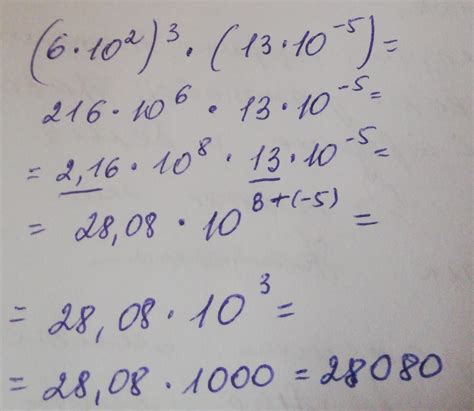 (6·10²)³·(13·10⁻⁵)=
216·10⁶·13·10⁻⁵=
=2,16·10⁸·13·10⁻⁵=
=28,08·10⁸⁺⁽⁻⁵⁾=
=28,08·10³=
=28,08·1000=28080